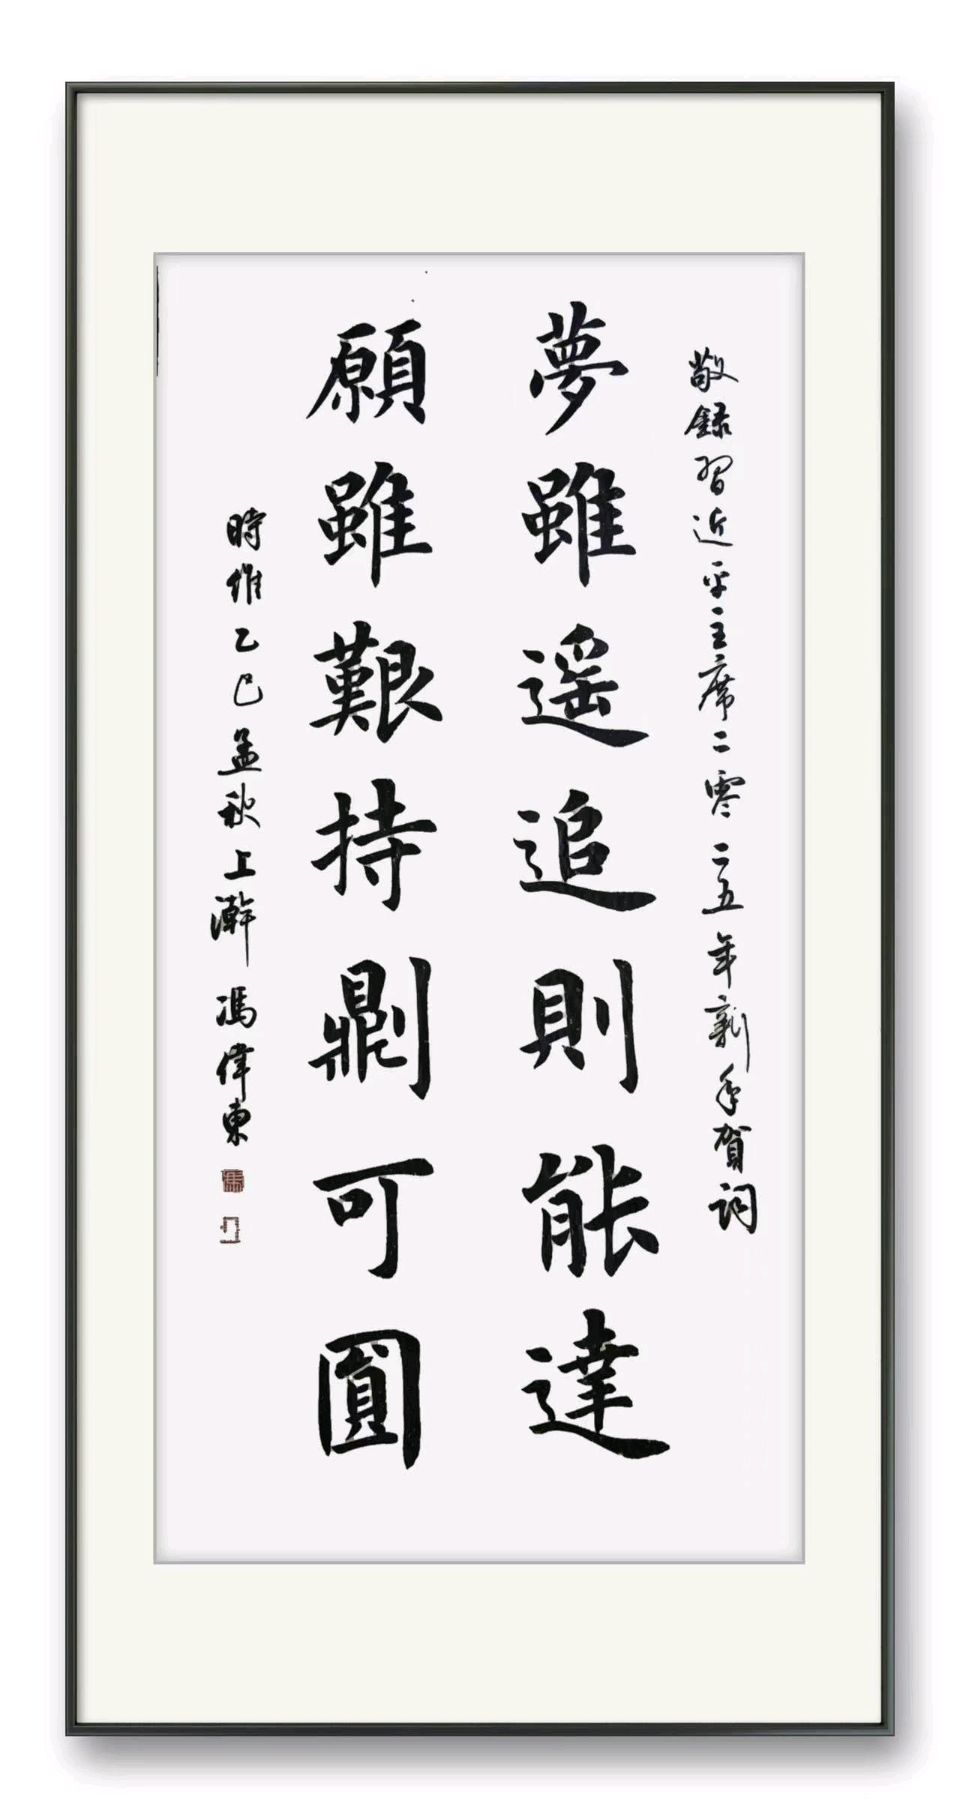 敬錄習近平主席二零二五年新年賀詞
夢雖遙追則能達
願雖艱持則可圓
時維乙巳孟秋上澣 馮偉東